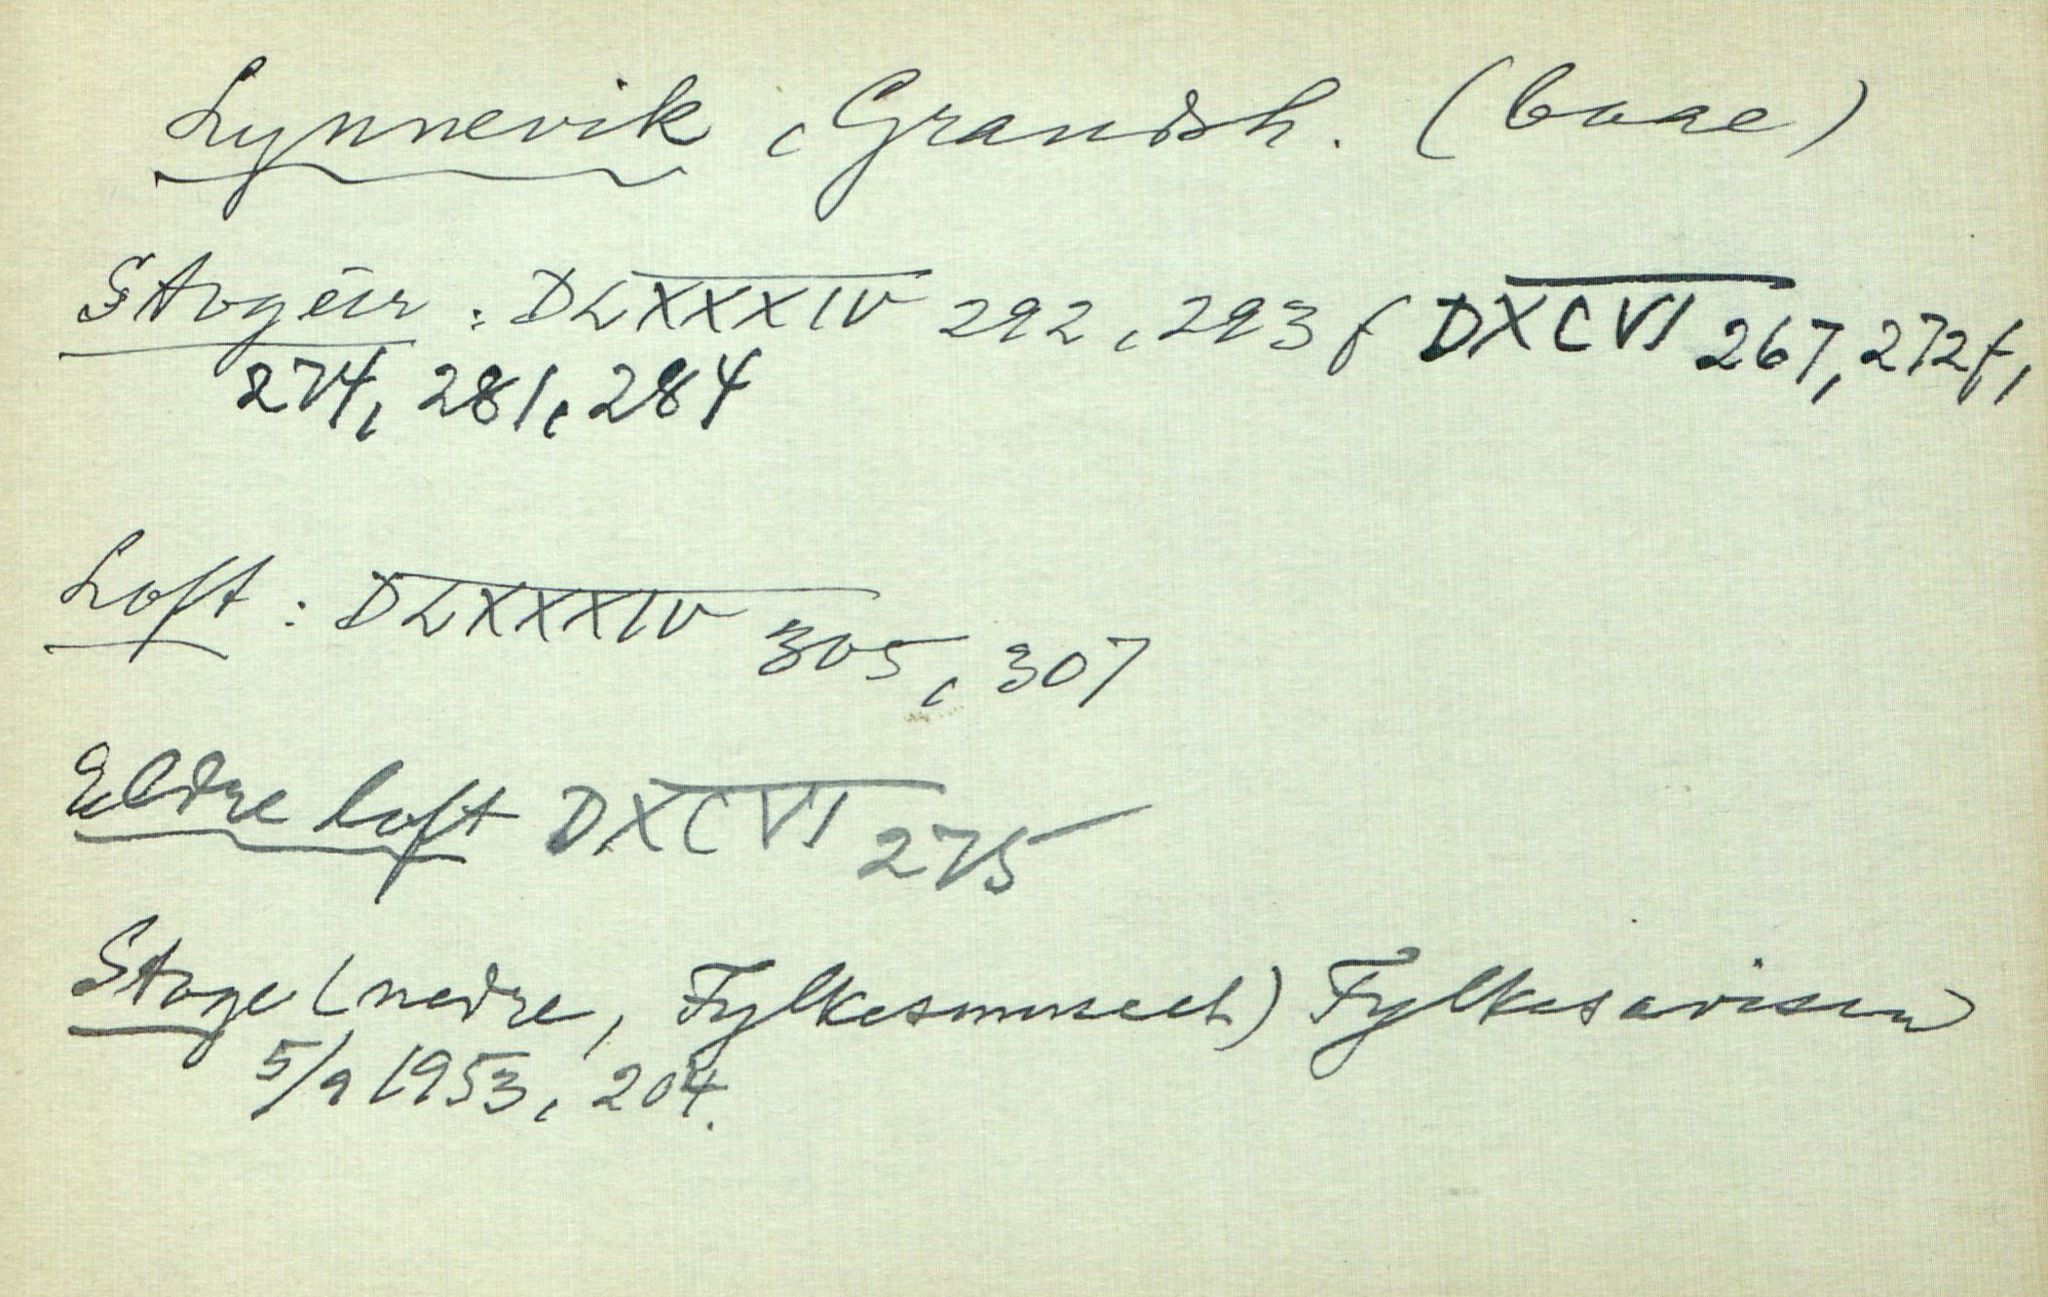 Lynnevik, Gransh. (buae)
Stogeir: DLXXXIV 292, 293 f DXCVI 267, 272f,
274, 281, 284
Loft: DLXXXIV 305, 307
Eldre loft DXCVI 275
Stoge (nedre, Fylkesmuseet) Fylkesavisen
5/9 1953, 204.